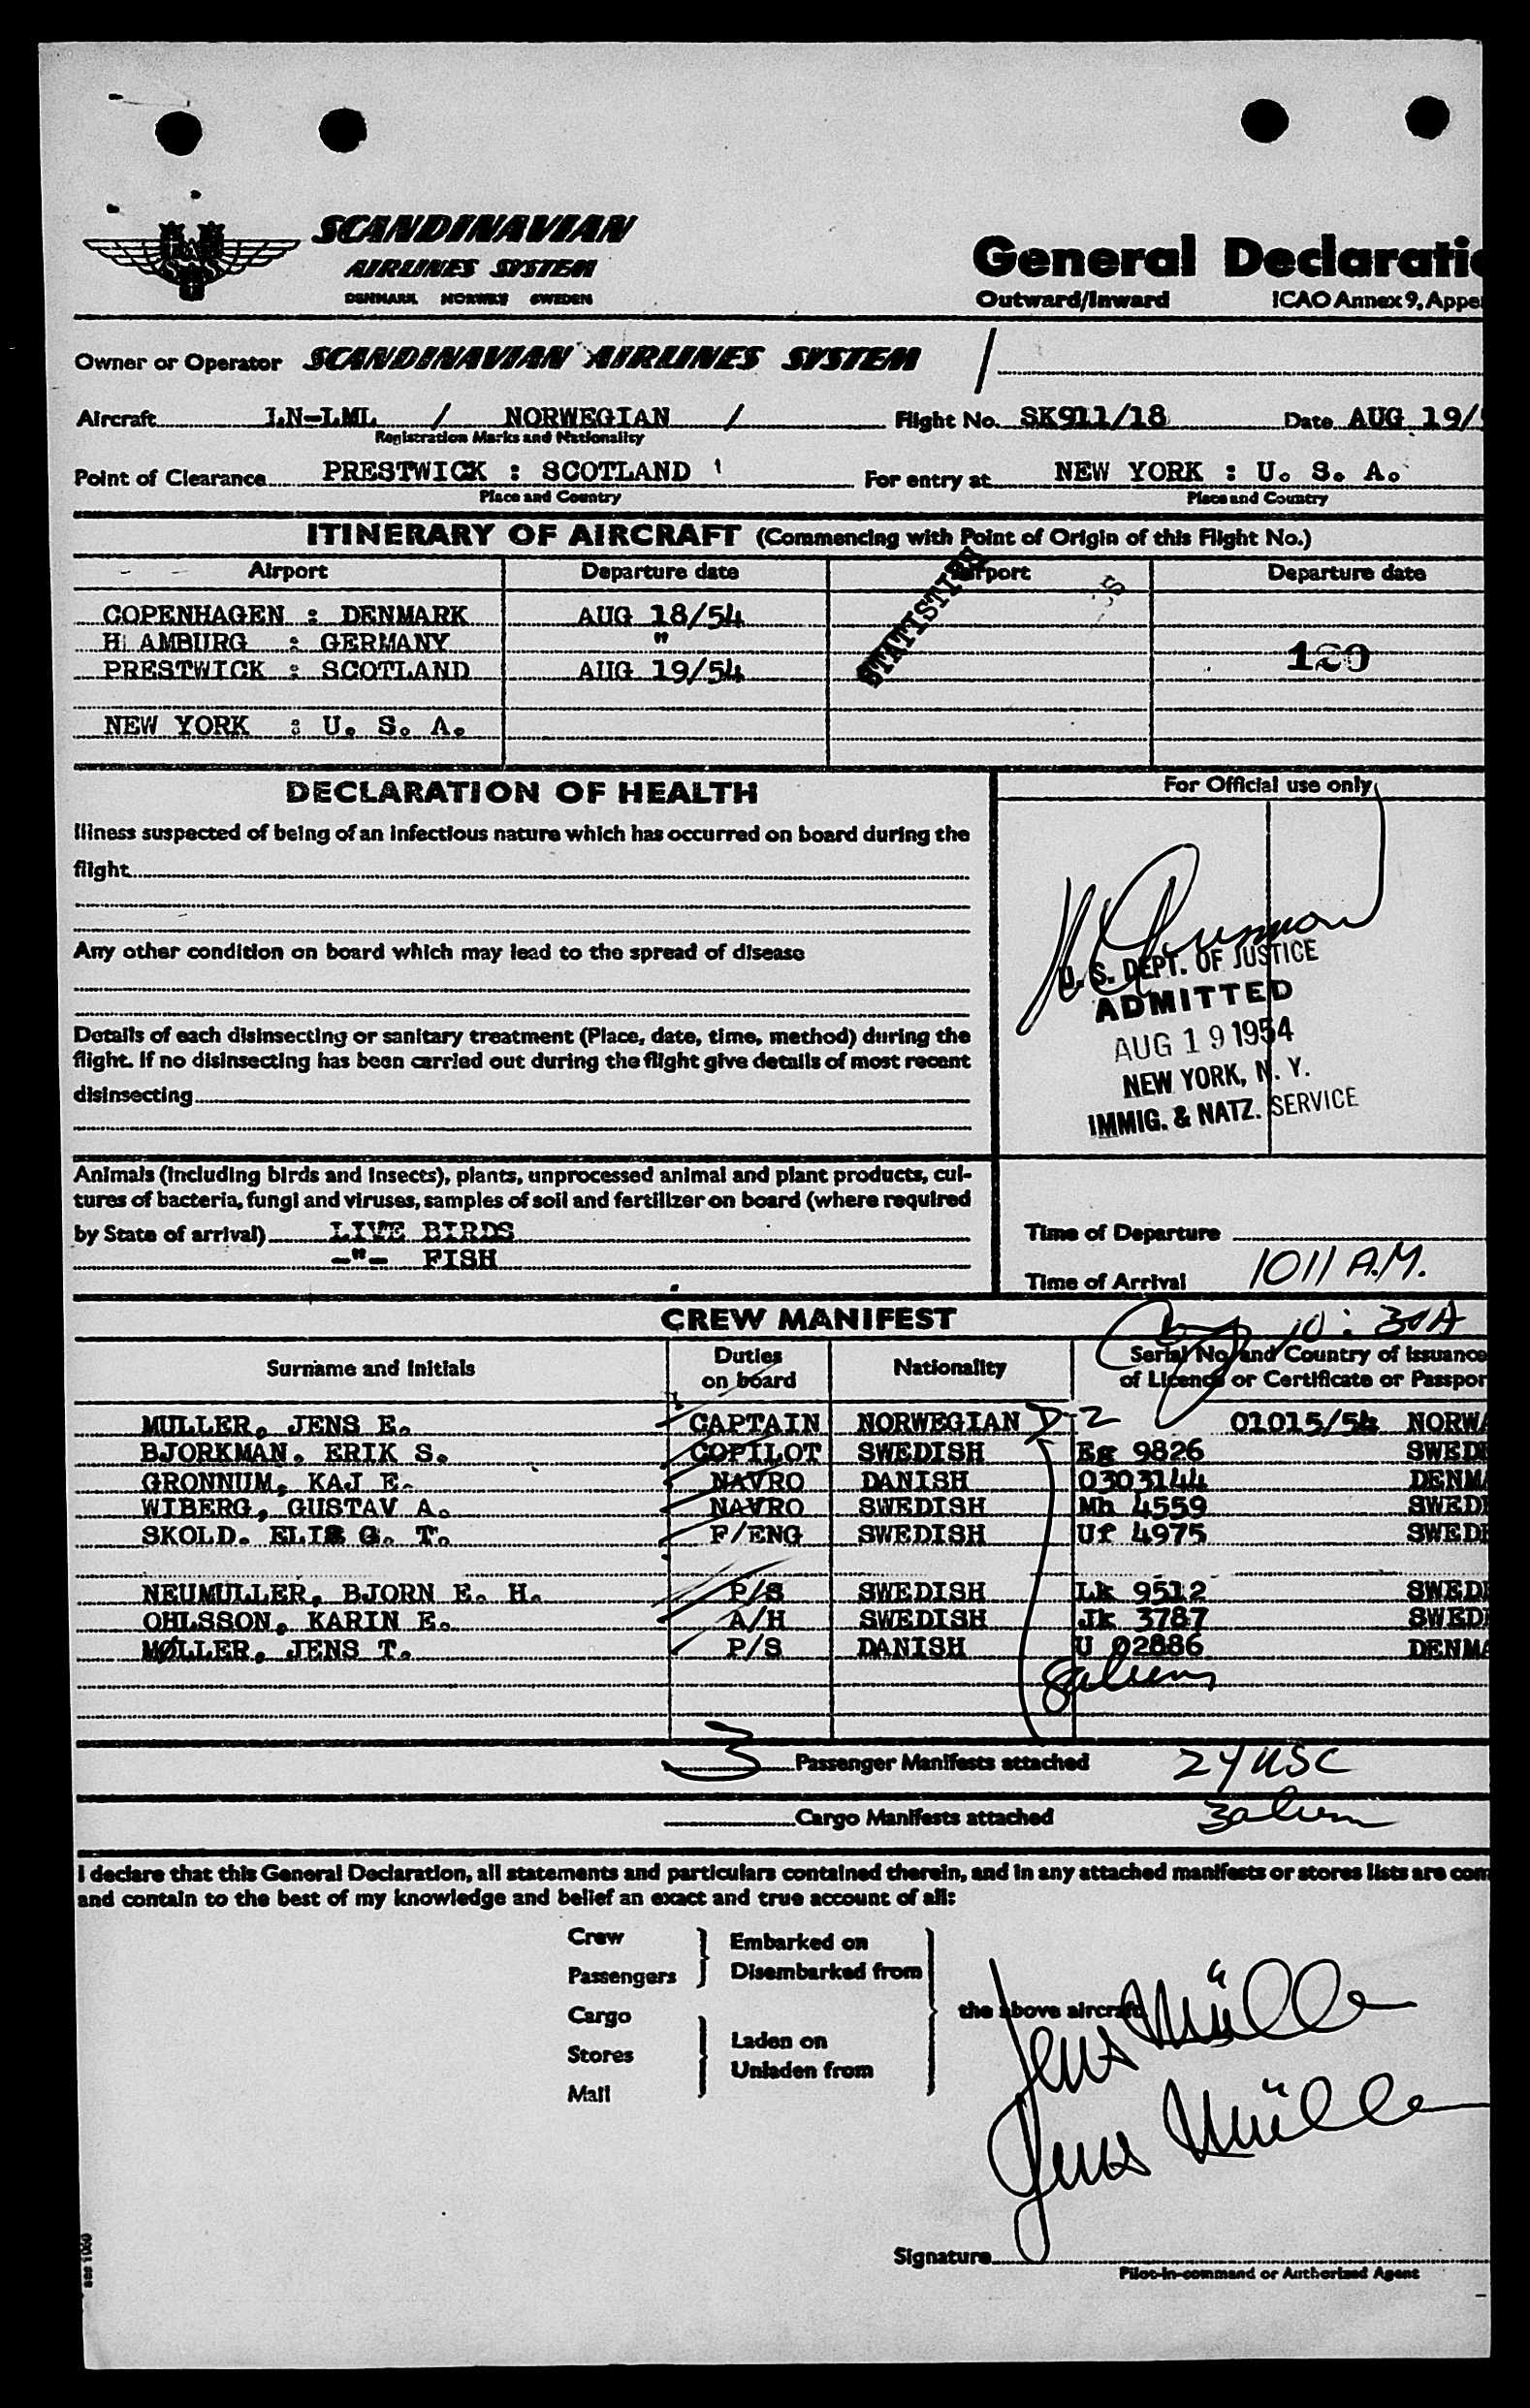 SCANDINAVIAN
AIRLINES SYSTEM
DENMARK NORWAY SWEDEN
General Declaratio
Outward/Inward ICAO Annex 9, Appe
Owner or Operator SCANDINAVIAN AIRLINES SYSTEM /
Aircraft LN-LML / NORWEGIAN / Flight No. SK911/18 Date AUG 19/
Registration Marks and Nationality
Point of Clearance PRESTWICK : SCOTLAND For entry at NEW YORK : U. S. A.
Place and Country Place and Country
ITINERARY OF AIRCRAFT (Commencing with Point of Origin of this Flight No.)
Airport Departure date Airport Departure date
STATISTICS
COPENHAGEN : DENMARK AUG 18/54
H AMBURG : GERMANY "
PRESTWICK : SCOTLAND AUG 19/54
NEW YORK : U. S. A.
DECLARATION OF HEALTH
For Official use only
Illness suspected of being of an infectious nature which has occurred on board during the
flight
Any other condition on board which may lead to the spread of disease
U. S. DEPT. OF JUSTICE
ADMITTED
AUG 19 1954
NEW YORK, N. Y.
IMMIG. & NATZ. SERVICE
Details of each disinsecting or sanitary treatment (Place, date, time, method) during the
flight. If no disinsecting has been carried out during the flight give details of most recent
disinsecting
Animals (including birds and insects), plants, unprocessed animal and plant products, cul-
tures of bacteria, fungi and viruses, samples of soil and fertilizer on board (where required
by State of arrival) LIVE BIRDS
-"- FISH
Time of Departure
Time of Arrival 1011 A.M.
CREW MANIFEST
10:30A
Surname and Initials Duties on board Nationality Serial No. and Country of issuance
of Licence or Certificate or Passpor
MULLER, JENS E. CAPTAIN NORWEGIAN D-2 01015/54 NORWA
BJORKMAN, ERIK S. COPILOT SWEDISH Eg 9826 SWED
GRONNUM, KAJ E. NAVRO DANISH 0303144 DENMA
WIBERG, GUSTAV A. NAVRO SWEDISH Mh 4559 SWED
SKOLD. ELIS G. T. F/ENG SWEDISH Uf 4975 SWED
NEUMULLER, BJORN E. H. P/S SWEDISH Lk 9512 SWED
OHLSSON, KARIN E. A/H SWEDISH Jk 3787 SWED
MØLLER, JENS T. P/S DANISH U 02886 DENMA
8 aliens
3 Passenger Manifests attached 24 USC
Cargo Manifests attached
I declare that this General Declaration, all statements and particulars contained therein, and in any attached manifests or stores lists are com
and contain to the best of my knowledge and belief an exact and true account of all:
Crew
Passengers
Embarked on
Disembarked from
Cargo
Stores
Mail
Laden on
Unladen from
the above aircraft
Jens Müller
Jens Müller
Signature
Pilot-in-command or Authorized Agent
sas 1060